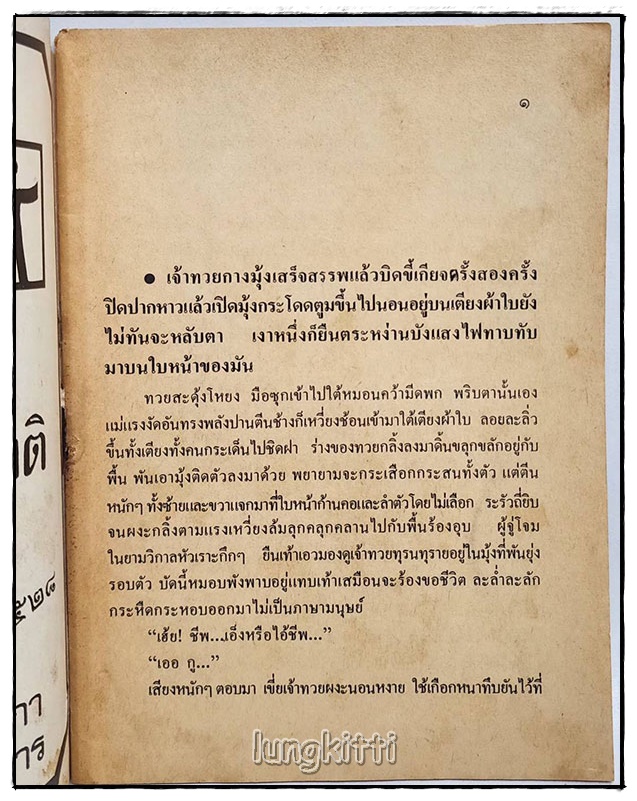 ๑
● เจ้าทวยกางมุ้งเสร็จสรรพแล้วบิดขี้เกียจครั้งสองครั้ง
ปิดปากหาวแล้วเปิดมุ้งกระโดดตูมขึ้นไปนอนอยู่บนเตียงผ้าใบยัง
ไม่ทันจะหลับตา เงาหนึ่งก็ยืนตระหง่านบังแสงไฟทาบทับ
มาบนใบหน้าของมัน
ทวยสะดุ้งโหยง มือซุกเข้าไปใต้หมอนคว้ามีดพก พริบตานั้นเอง
แม่แรงงัดอันทรงพลังปานตีนช้างก็เหวี่ยงช้อนเข้ามาใต้เตียงผ้าใบ ลอยละลิ่ว
ขึ้นทั้งเตียงทั้งคนกระเด็นไปชิดฝา ร่างของทวยกลิ้งลงมาดิ้นขลุกขลักอยู่กับ
พื้น พันเอามุ้งติดตัวลงมาด้วย พยายามจะกระเสือกกระสนทั้งตัว แต่ตีน
หนักๆ ทั้งซ้ายและขวาแจกมาที่ใบหน้าก้านคอและลำตัวโดยไม่เลือก ระรัวถี่ยิบ
จนผงะกลิ้งตามแรงเหวี่ยงล้มลุกคลุกคลานไปกับพื้นร้องอุบ ผู้จู่โจม
ในยามวิกาลหัวเราะกึกๆ ยืนเท้าเอวมองดูเจ้าทวยทุรนทุรายอยู่ในมุ้งที่พันยุ่ง
รอบตัว บัดนี้หมอบพังพาบอยู่แทบเท้าเสมือนจะร้องขอชีวิต ละล่ำละลัก
กระหืดกระหอบออกมาไม่เป็นภาษามนุษย์
“เฮ้ย! ชีพ...เอ็งหรือไอ้ชีพ...”
“เออ กู...”
เสียงหนักๆ ตอบมา เขี่ยเจ้าทวยผงะนอนหงาย ใช้เกือกหนาทึบยันไว้ที่
ติ
๕๒๘
กา
การ
lungkitti